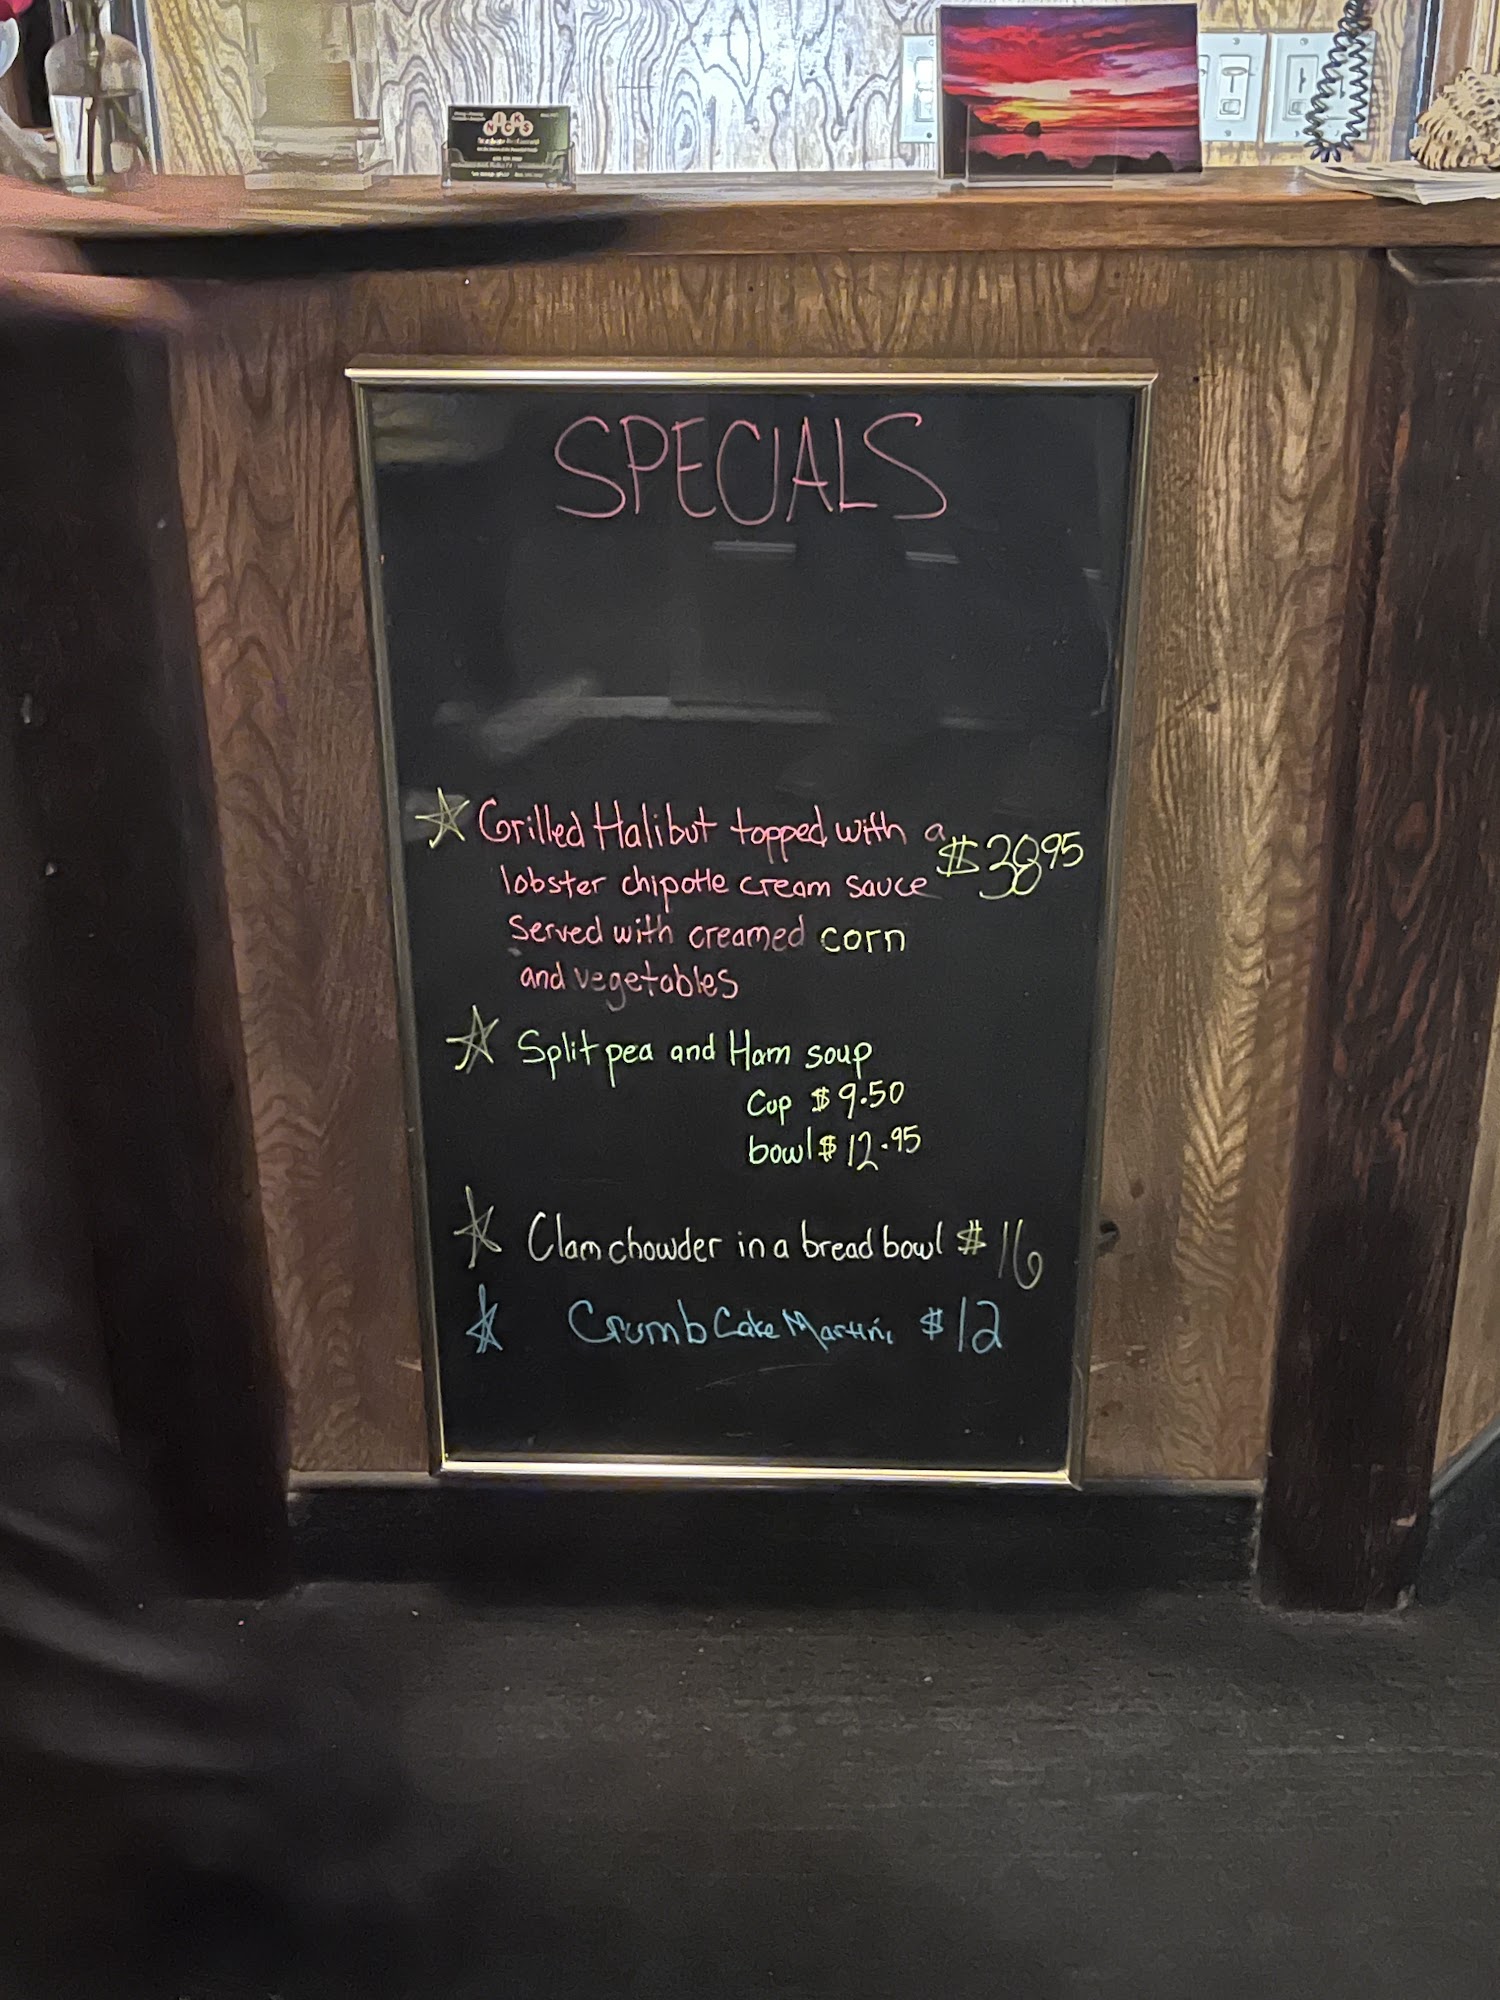 NICK'S
SPECIALS
Grilled Halibut topped with a
$38.95
lobster chipotle cream sauce
Served with creamed corn
and vegetables
Split pea and Ham soup
Cup $9.50
bowl $12.95
Clam chowder in a bread bowl $16
Crumb Cake Martini $12